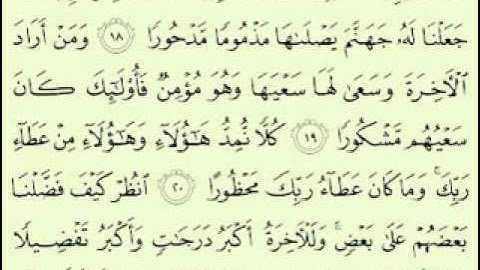 جَعَلْنَا لَهُۥ جَهَنَّمَ يَصْلَىٰهَا مَذْمُومًا مَّدْحُورًا ١٨ وَمَنْ أَرَادَ
ٱلْـَٔاخِرَةَ وَسَعَىٰ لَهَا سَعْيَهَا وَهُوَ مُؤْمِنٌ فَأُو۟لَـٰٓئِكَ كَانَ
سَعْيُهُم مَّشْكُورًا ١٩ كُلًّا نُّمِدُّ هَـٰٓؤُلَآءِ وَهَـٰٓؤُلَآءِ مِنْ عَطَآءِ
رَبِّكَ ۚ وَمَا كَانَ عَطَآءُ رَبِّكَ مَحْظُورًا ٢٠ ٱنظُرْ كَيْفَ فَضَّلْنَا
بَعْضَهُمْ عَلَىٰ بَعْضٍ ۚ وَلَلْـَٔاخِرَةُ أَكْبَرُ دَرَجَـٰتٍ وَأَكْبَرُ تَفْضِيلًا